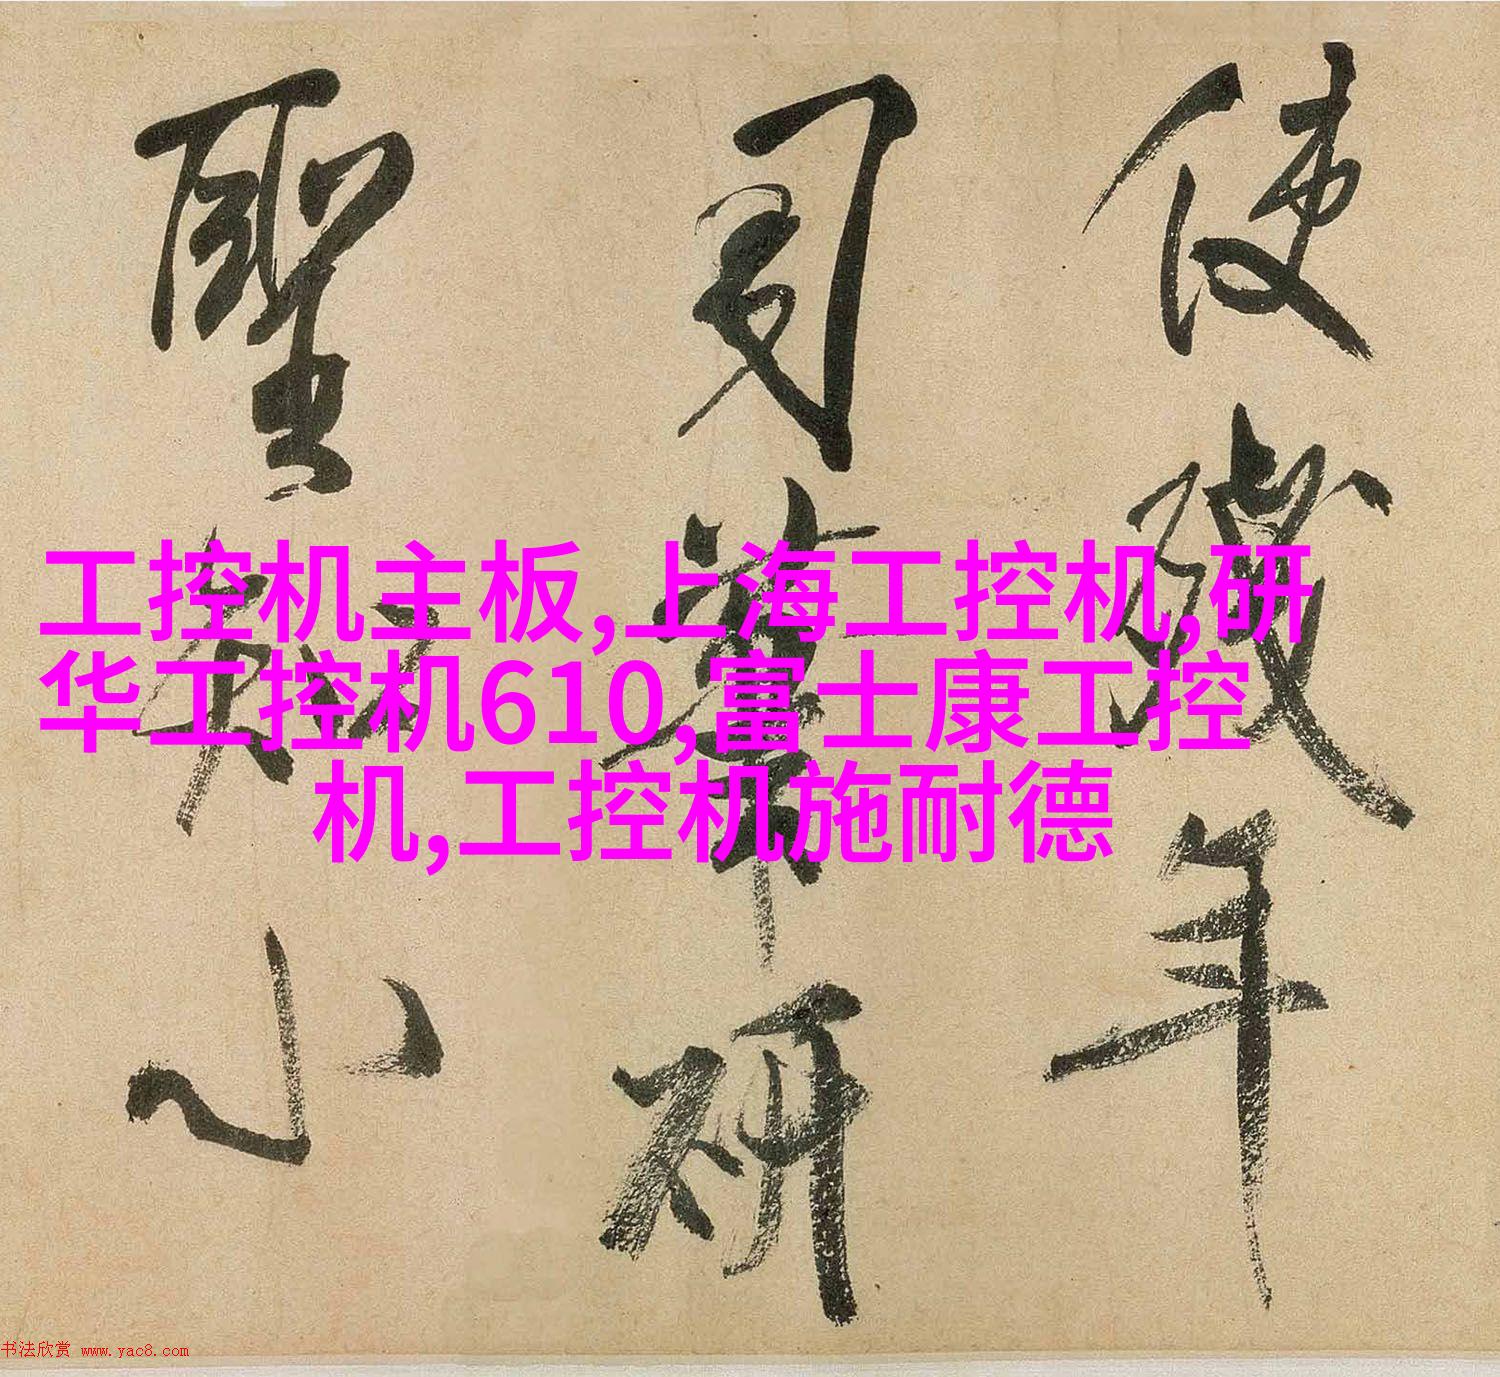 使殘年
司筆研
聖知小
工控机主板,上海工控机,研
华工控机610,富士康工控
机,工控机施耐德
书法欣赏 www.yac8.com